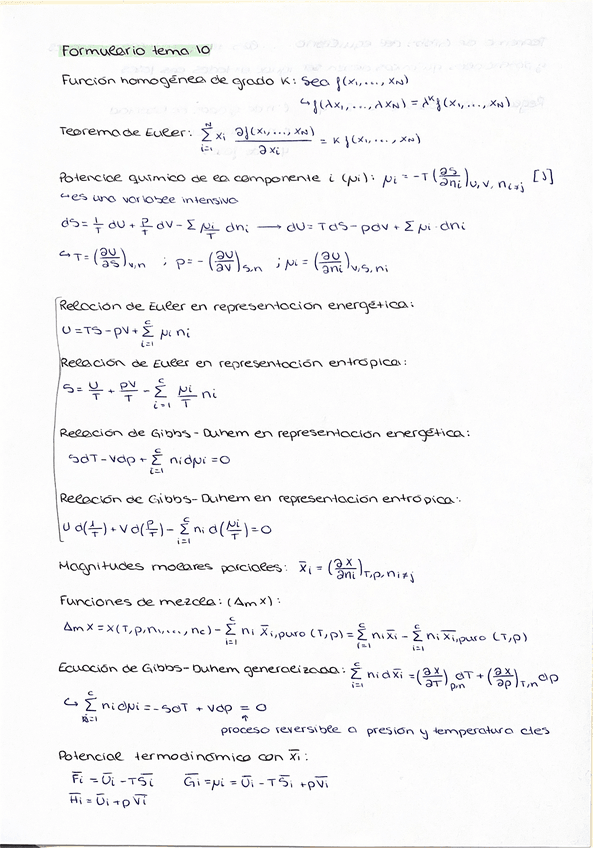 Formulario tema 10
Función homogénea de grado K: Sea f(x₁,..., x_N)
↳ f(λx₁,..., λx_N) = λᴷ f(x₁,..., x_N)
Teorema de Euler: Σ_{i=1}^{N} xᵢ ∂f(x₁,..., x_N)/∂xᵢ = K f(x₁,..., x_N)
Potencial químico de la componente i (μᵢ): μᵢ = -T(∂S/∂nᵢ)_{U,V,n_{i≠j}} [J]
↳ es una variable intensiva
dS = 1/T dU + p/T dV - Σ μᵢ/T dnᵢ ⟶ dU = TdS - pdV + Σ μᵢ · dnᵢ
↳ T = (∂U/∂S)_{V,n} ; p = -(∂U/∂V)_{S,n} ; μᵢ = (∂U/∂nᵢ)_{V,S,nᵢ}
Relación de Euler en representación energética:
U = TS - pV + Σ_{i=1}^{c} μᵢ nᵢ
Relación de Euler en representación entrópica:
S = U/T + pV/T - Σ_{i=1}^{c} μᵢ/T nᵢ
Relación de Gibbs-Duhem en representación energética:
SdT - Vdp + Σ_{i=1}^{c} nᵢdμᵢ = 0
Relación de Gibbs-Duhem en representación entrópica:
U d(1/T) + V d(p/T) - Σ_{i=1}^{c} nᵢ d(μᵢ/T) = 0
Magnitudes molares parciales: x̄ᵢ = (∂X/∂nᵢ)_{T,p,n_{i≠j}}
Funciones de mezcla: (ΔₘX):
ΔₘX = X(T,p,n₁,..., n_c) - Σ_{i=1}^{c} nᵢ x̄_{i,puro} (T,p) = Σ_{i=1}^{c} nᵢx̄ᵢ - Σ_{i=1}^{c} nᵢ x̄_{i,puro} (T,p)
Ecuación de Gibbs-Duhem generalizada: Σ_{i=1}^{c} nᵢdx̄ᵢ = (∂X/∂T)_{p,n} dT + (∂X/∂p)_{T,n} dp
↳ Σ_{i=1}^{c} nᵢdμᵢ = -SdT + Vdp = 0
↑
proceso reversible a presión y temperatura ctes
Potencial termodinámico con x̄ᵢ:
F̄ᵢ = Ūᵢ - TS̄ᵢ Ḡᵢ = μᵢ = Ūᵢ - TS̄ᵢ + pV̄ᵢ
H̄ᵢ = Ūᵢ + pV̄ᵢ